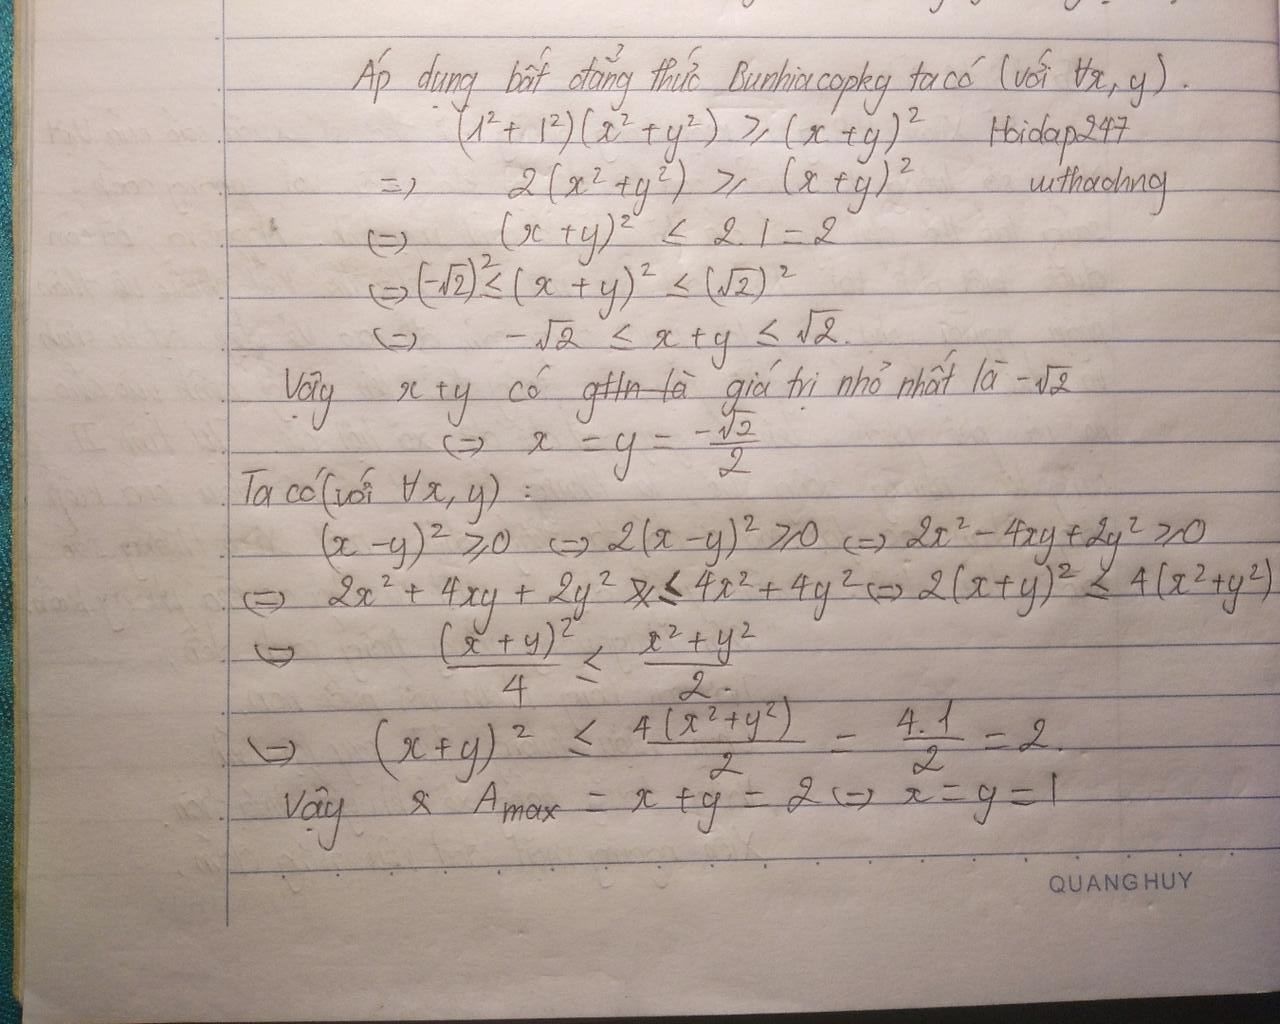 Áp dụng bất đẳng thức Bunhiacopky ta có (với ∀x, y).
(1² + 1²)(x² + y²) ≥ (x + y)² Hoidap247
=> 2(x² + y²) ≥ (x + y)²
<=> (x + y)² ≤ 2.1 = 2
<=> (-√2)² ≤ (x + y)² ≤ (√2)²
<=> -√2 ≤ x + y ≤ √2.
Vậy x + y có giá trị nhỏ nhất là -√2
<=> x = y = -√2/2
Ta có (với ∀x, y) :
(x - y)² ≥ 0 <=> 2(x - y)² ≥ 0 <=> 2x² - 4xy + 2y² ≥ 0
<=> 2x² + 4xy + 2y² ≤ 4x² + 4y² <=> 2(x + y)² ≤ 4(x² + y²)
<=> (x + y)²/4 ≤ x² + y²/2.
<=> (x + y)² ≤ 4(x² + y²)/2 = 4.1/2 = 2.
Vậy Amax = x + y = 2 <=> x = y = 1
QUANG HUY